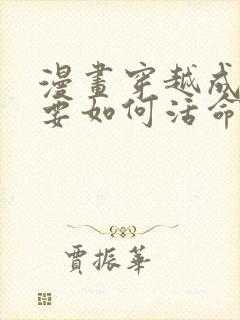 漫畫穿越成
要如何活命
賈振華